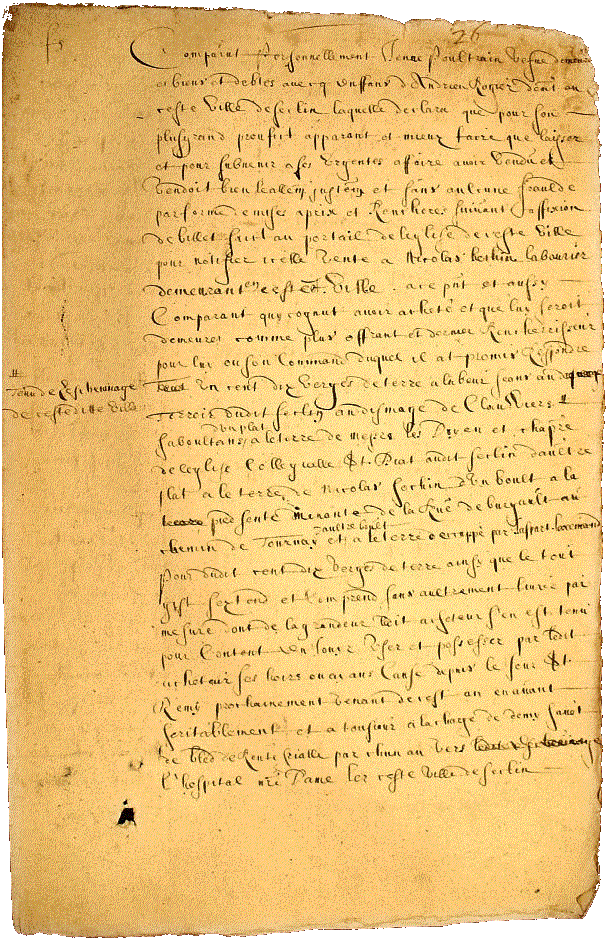 26
Comparut personnellement Jenne Poultrain vefve demeuree
es biens et debtes avecq enffans d'Andrieu Rogier dem't en
ceste ville de seclin laquelle declara que pour son
plus grand prouffit apparant et mieux faire que laisser
et pour subvenir a ses urgentes affaire avoir vendu et
vendoit bien leallem't justem't et sans aulcune fraulde
par forme de mises a prix et rencheres suivant l'affixion
de billet faict au portail de l'eglise de ceste ville
pour notifier icelle vente a Nicolas laburier
demeurant en ceste d. ville a ce p'nt et aussy
Comparant quy cognut avoir acheté et que luy seroit
demeuret comme plus offrant et dernier rencherisseur
pour luy ou son Command duquel il at promis respondre
Un cent dix verges de terre a labeur seans au
#
Tenu de l'eschevinage
de cesteditte ville
terroir dudit seclin au dismage de #
d'un plat
haboultans a le terre de mess'rs les Doyen et chap're
de l'eglise Collegialle St. Piat audit seclin d'aultre
plat a le terre de Nicolas sechin d'un boult a la
p'nte de la Rue de au
d'aultre boult
chemin de Tournay et a le terre par
Pour dudit cent dix verges de terre ainsy que le tout
gist s'extend et comprend sans aultrement livré par
mesure dont de la grandeur ledit acheteur s'en est tenu
pour content en jouyr user et possesser par ledit
acheteur ses hoirs ou aians cause depuis le jour St.
Remy prochainement venant de cest an en avant
heritablement et a tousjour a la charge de demy havot
de bled de rente par chun an vers
l'hospital n're Dame lez ceste ville de seclin